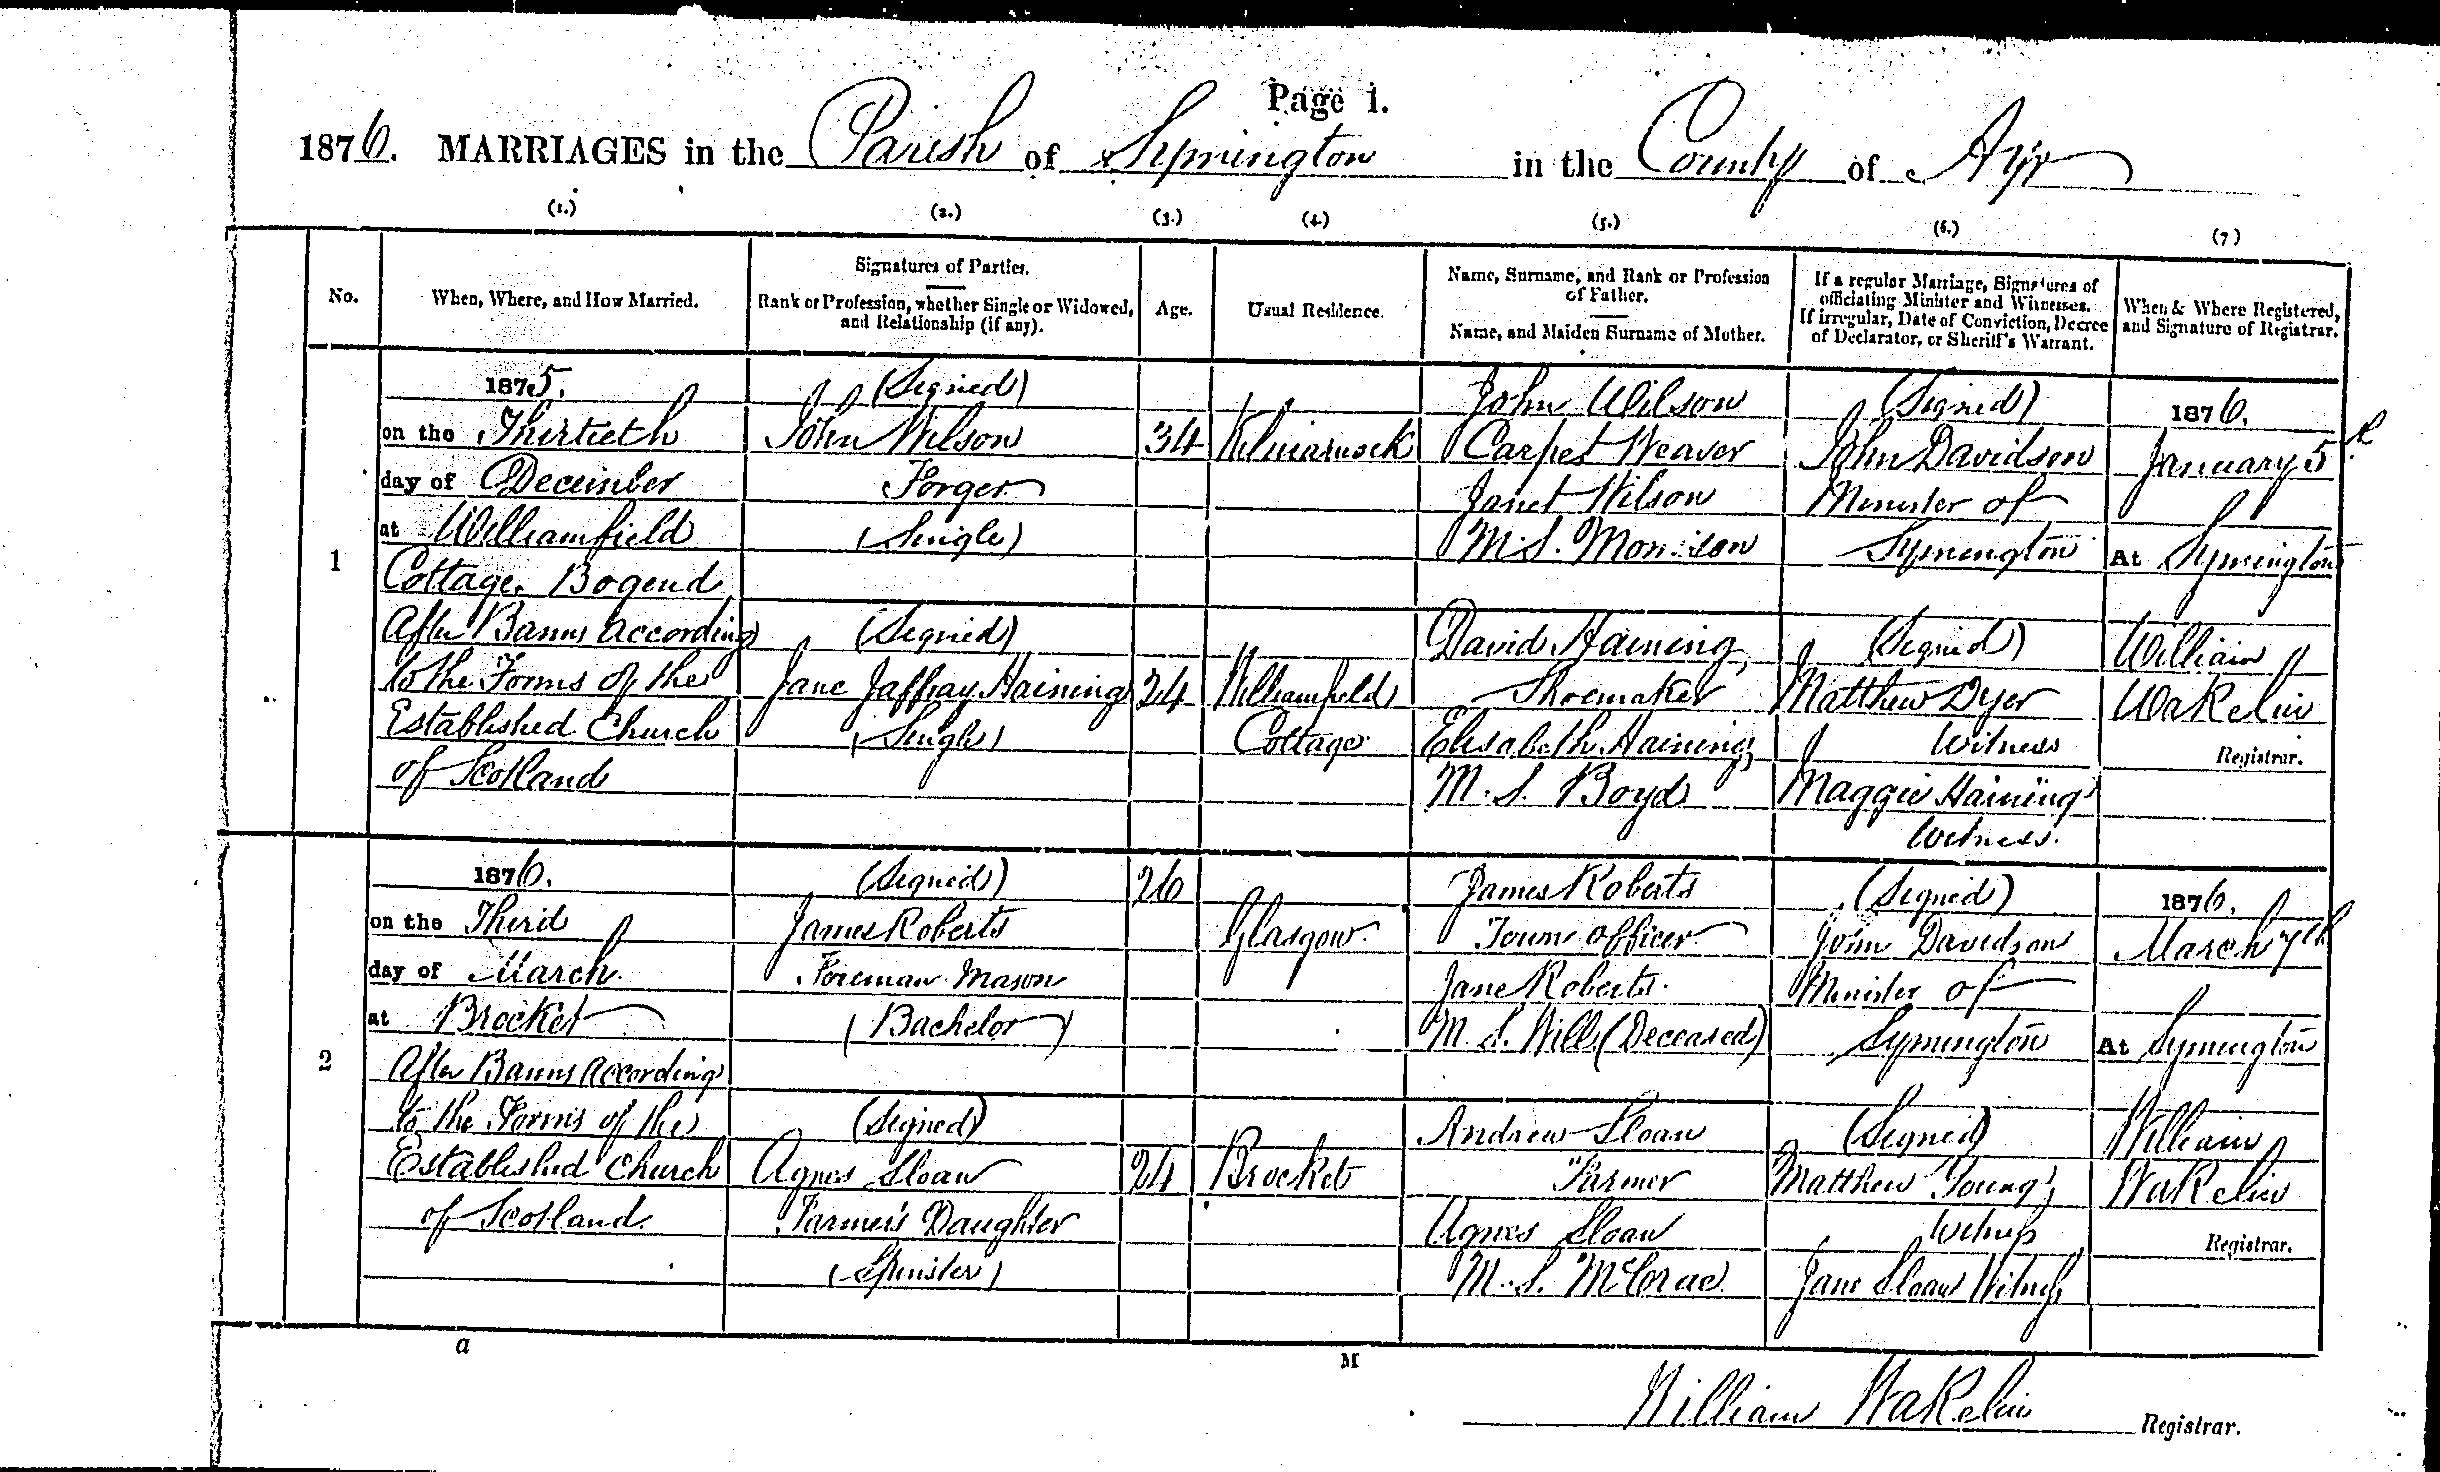 Page 1.
1876. MARRIAGES in the Parish of Symington in the County of Ayr
(1.) (2.) (3.) (4.) (5.) (6.) (7)
No.
When, Where, and How Married.
Signatures of Parties.
Rank or Profession, whether Single or Widowed,
and Relationship (if any).
Age.
Usual Residence.
Name, Surname, and Rank or Profession
of Father.
Name, and Maiden Surname of Mother.
If a regular Marriage, Signatures of
officiating Minister and Witnesses.
If irregular, Date of Conviction, Decree
of Declarator, or Sheriff's Warrant.
When & Where Registered,
and Signature of Registrar.
1
1875.
on the Thirtieth
day of December
at Williamfield
Cottage, Bogend
After Banns according
to the Forms of the
Established Church
of Scotland
(Signed)
John Wilson
Forger
(Single)
(Signed)
Jane Jaffray Haining
(Single)
34
24
Kilmarnock
Williamfield
Cottage
John Wilson
Carpet Weaver
Janet Wilson
M.S. Morrison
David Haining,
Shoemaker
Elisabeth Haining,
M.S. Boyd
(Signed)
John Davidson
Minister of
Symington
(Signed)
Matthew Dyer
Witness
Maggie Haining
Witness.
1876.
January 5th
At Symington
William
Wakelin
Registrar.
2
1876.
on the Third
day of March
at Brocket
After Banns According
to the Forms of the
Established Church
of Scotland.
(Signed)
James Roberts
Foreman Mason
(Bachelor)
(Signed)
Agnes Sloan
Farmer's Daughter
(Spinster)
26
24
Glasgow
Brocket
James Roberts
Town Officer
Jane Roberts
M.S. Will (Deceased)
Andrew Sloan
Farmer
Agnes Sloan
M.S. McCrae
(Signed)
John Davidson
Minister of
Symington
(Signed)
Matthew Young,
Witness
Jane Sloan Witness
1876.
March 7th
At Symington
William
Wakelin
Registrar.
a M
William Wakelin Registrar.